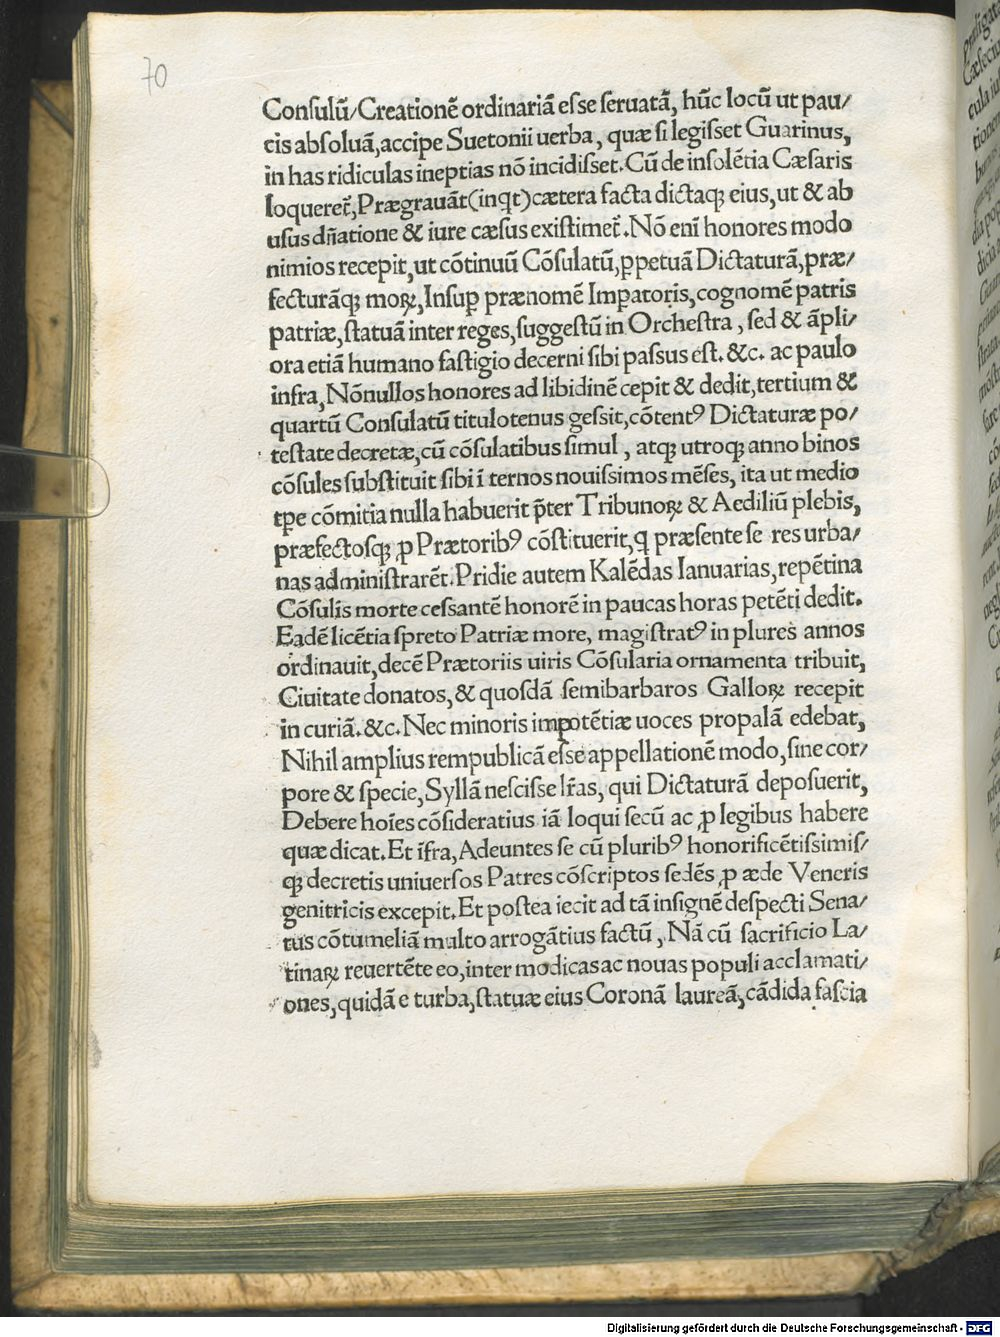 70
Conſulũ/Creationẽ ordinariã eſse ſeruatã, hũc locũ ut pau/
cis abſoluã,accipe Suetonii uerba, quæ ſi legiſset Guarinus,
in has ridiculas ineptias nõ incidiſset. Cũ de inſolẽtia Cæſaris
loqueret᷑,Prægrauãt(inqt)cætera facta dictaqꝫ eius,ut & ab
uſus dn̄atione & iure cæſus exiſtimet᷑. Nõ eni̅ honores modo
nimios recepit,ut cõtinuũ Cõſulatũ,ꝑpetuã Dictaturã,præ/
fecturãqꝫ moꝝ,Inſuꝑ prænomẽ Imꝑatoris,cognomẽ patris
patriæ,ſtatuã inter reges,ſuggeſtũ in Orcheſtra , ſed & ãpli/
ora etiã humano faſtigio decerni ſibi paſsus eſt. &c. ac paulo
infra, Nõnullos honores ad libidinẽ cepit & dedit,tertium &
quartũ Conſulatũ titulotenus geſsit,cõtentꝰ Dictaturæ po/
teſtate decretæ,cũ cõſulatibus ſimul , atqꝫ utroqꝫ anno binos
cõſules ſubſtituit ſibi ĩ ternos nouiſsimos mẽſes, ita ut medio
tꝑe cõmitia nulla habuerit p̃ter Tribunoꝝ & Aediliũ plebis,
præfectoſqꝫ ꝓ Prætoribꝰ cõſtituerit,q̇ præſente ſe res urba/
nas adminiſtrarẽt. Pridie autem Kalẽdas Ianuarias,repẽtina
Cõſulis morte ceſsantẽ honorẽ in paucas horas petẽti dedit.
Eadẽ licẽtia ſpreto Patriæ more, magiſtratꝰ in plures annos
ordinauit,decẽ Prætoriis uiris Cõſularia ornamenta tribuit,
Ciuitate donatos,& quoſdã ſemibarbaros Galloꝝ recepit
in curiã. &c. Nec minoris impotẽtiæ uoces propalã edebat,
Nihil amplius rempublicã eſse appellationẽ modo,ſine cor/
pore & ſpecie,Syllã neſciſse lr̃as, qui Dictaturã depoſuerit,
Debere hoĩes cõſideratius iã loqui ſecũ ac ꝓ legibus habere
quæ dicat. Et ĩfra,Adeuntes ſe cũ pluribꝰ honorificẽtiſsimiſ/
qꝫ decretis uniuerſos Patres cõſcriptos ſedẽs ꝓ æde Veneris
genitricis excepit. Et poſtea iecit ad tã inſignẽ deſpecti Sena/
tus cõtumeliã multo arrogãtius factũ , Nã cũ ſacrificio La/
tinaꝝ reuertẽte eo,inter modicas ac nouas populi acclamati/
ones,quidã e turba,ſtatuæ eius Coronã laureã,cãdida faſcia
Digitalisierung gefördert durch die Deutsche Forschungsgemeinschaft - DFG